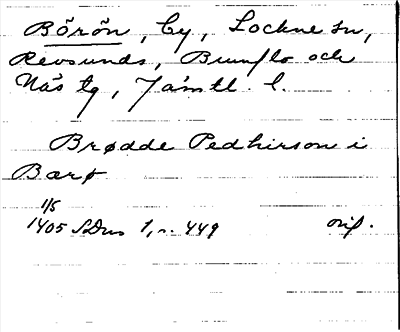 Börön, by, Lockne sn,
Revsunds, Brunflo och
Näs tg, Jämtl. l.
Brødde Pedhirson i
Barø
1/5
1405 SDns 1, n. 449
orig.